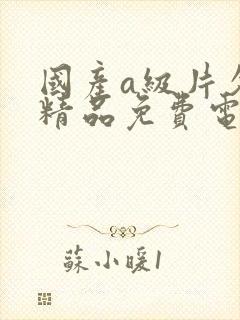 國產a級片
精品免費電
蘇小暖1